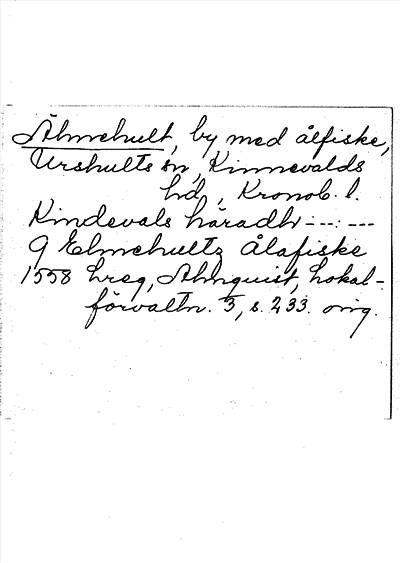 Älmehult, by med ålfiske,
Urshults sn, Kinnevalds
hd, Kronob. l.
Kindevals häradh - - - : - - -
9 Elmehultz Ålafiske
1558 hreg, Almquist, Lokal-
förvaltn. 3, s. 233. orig.